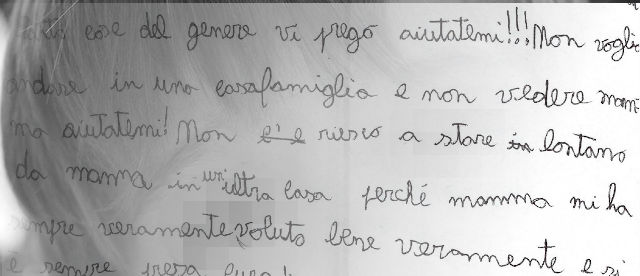 tante cose del genere vi prego aiutatemi!!! Non voglio
andare in una casafamiglia e non vedere mam-
ma aiutatemi! Non e' e riesco a stare in lontano
da mamma in un'altra casa perché mamma mi ha
sempre veramente voluto bene veramente e si
e sempre presa cura